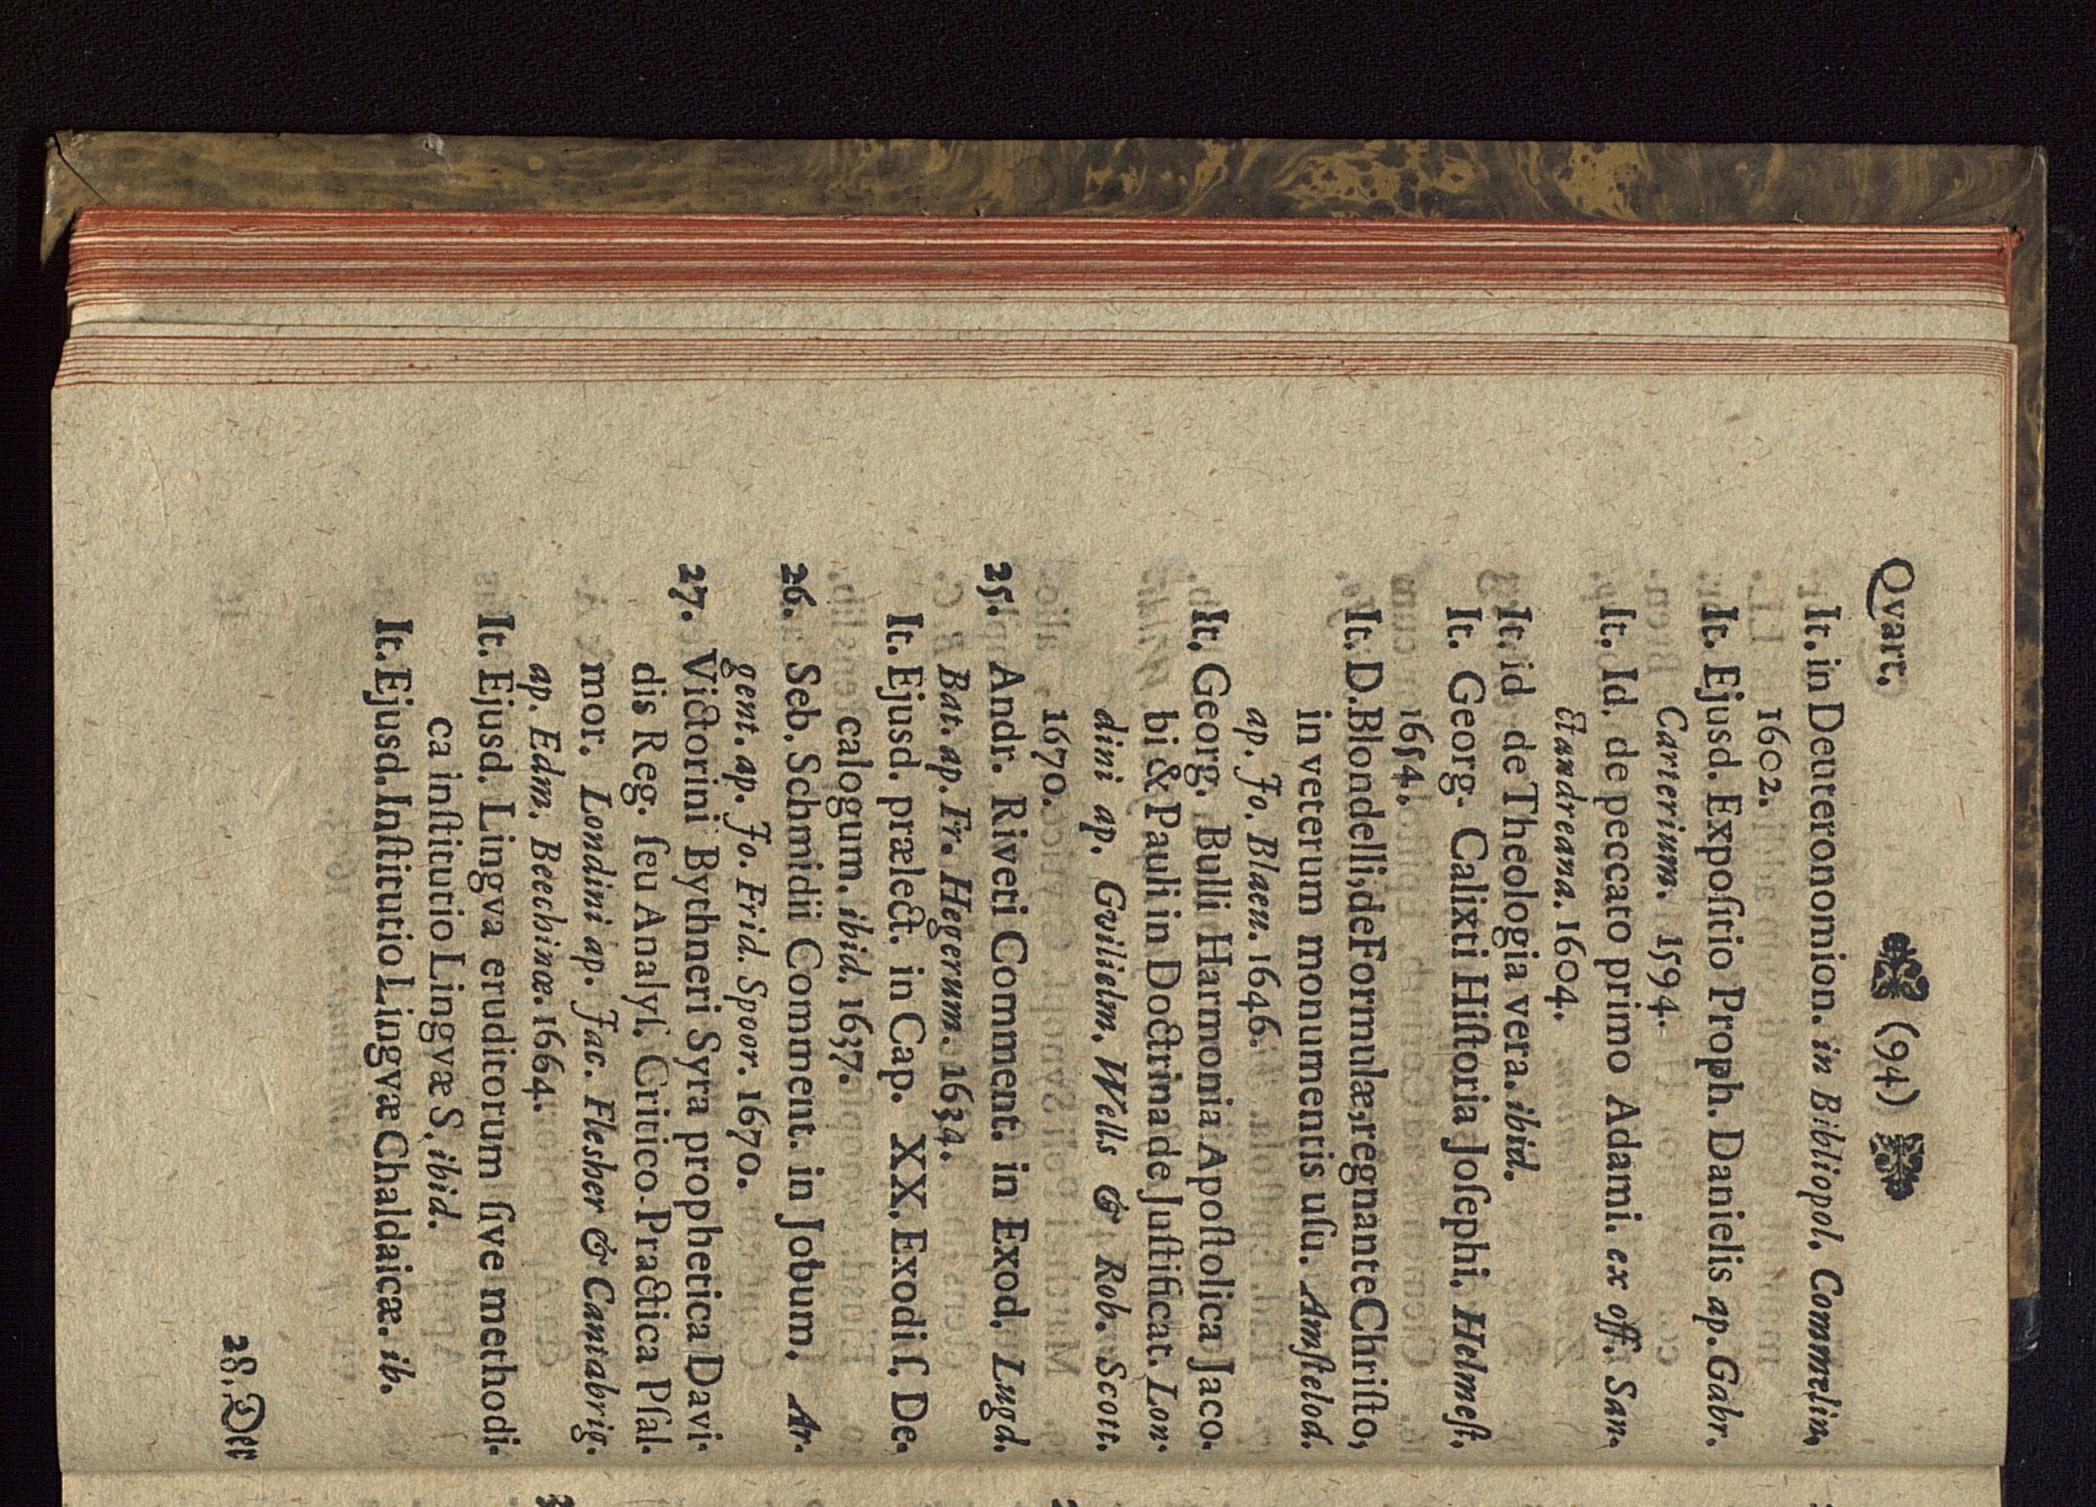 Qvart. (94)
It. in Deuteronomion. in Bibliopol. Commelin,
1602.
It. Ejusd. Expoſitio Proph. Danielis ap. Gabr.
Carterium. 1594.
It. Id. de peccato primo Adami. ex off. San-
ctandreana. 1604.
It. id de Theologia vera. ibid.
It. Georg. Calixti Hiſtoria Joſephi. Helmeſt.
1654.
It. D. Blondelli, de Formulæ, regnante Chriſto,
in veterum monumentis uſu. Amſtelod.
ap. Jo. Blaeu. 1646.
It. Georg. Bulli Harmonia Apoſtolica Jaco-
bi & Pauli in Doctrina de Juſtificat. Lon-
dini ap. Gvilielm. Wells & Rob. Scott.
1670.
25. Andr. Riveti Comment. in Exod. Lugd.
Bat. ap. Fr. Hegerum. 1634.
It. Ejusd. prælect. in Cap. XX. Exodi ſ. De-
calogum. ibid. 1637.
26. Seb. Schmidii Comment. in Jobum. Ar-
gent. ap. Jo. Frid. Spoor. 1670.
27. Victorini Bythneri Syra prophetica Davi-
dis Reg. ſeu Analyſ. Critico-Practica Pſal-
mor. Londini ap. Jac. Flesher & Cantabrig.
ap. Edm. Beechinæ. 1664.
It. Ejusd. Lingva eruditorum ſive methodi-
ca inſtitutio Lingvæ S. ibid.
It. Ejusd. Inſtitutio Lingvæ Chaldaicæ. ib.
28. Der